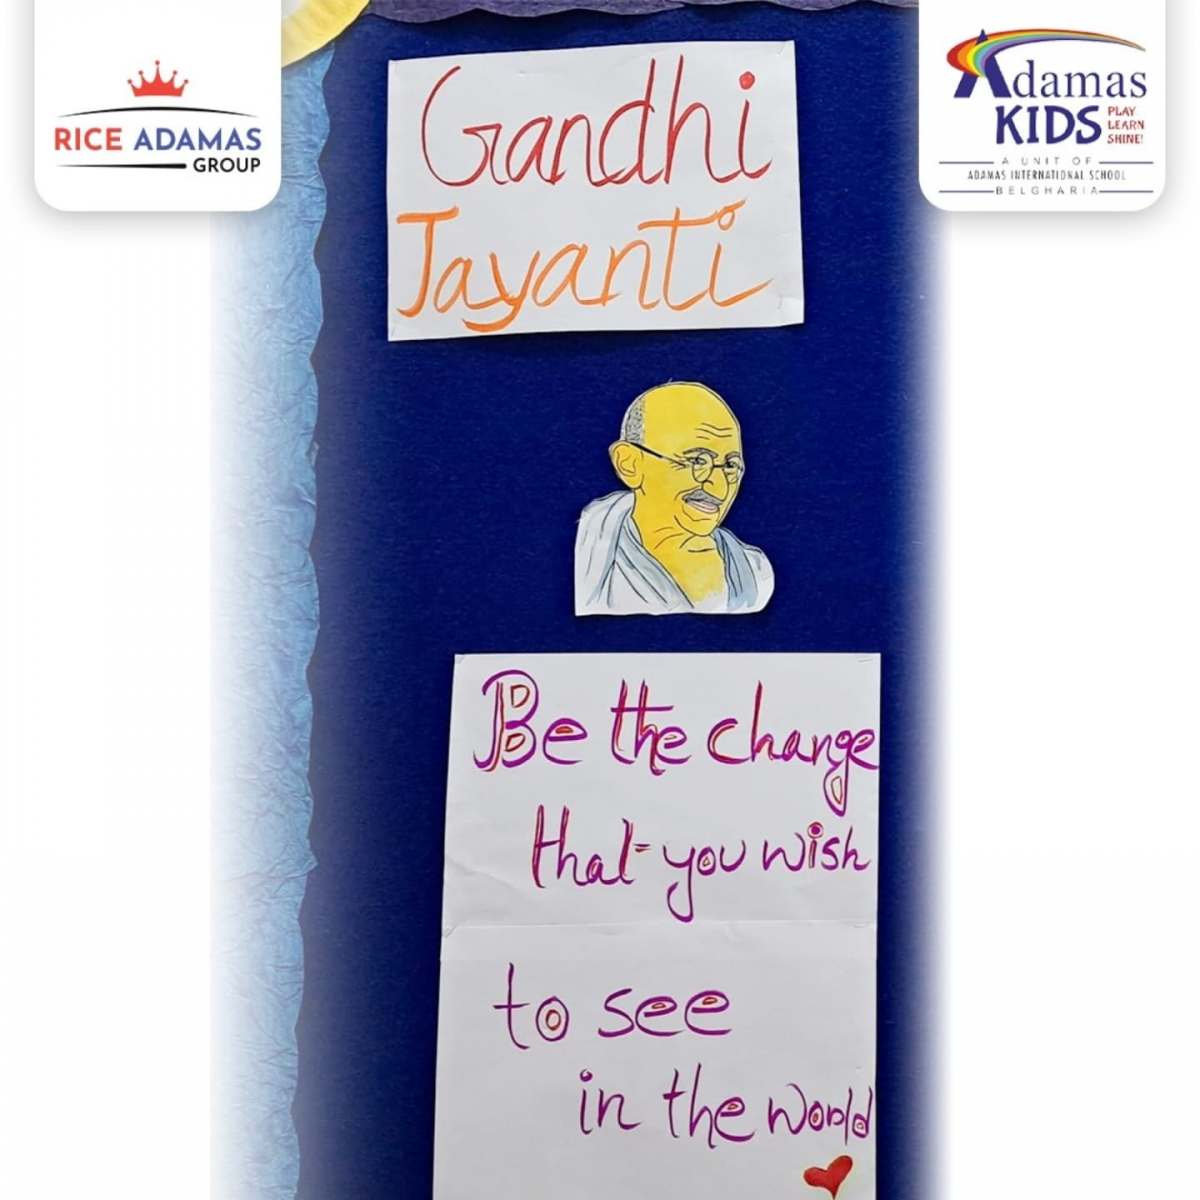 RICE ADAMAS
GROUP
Adamas
KIDS
PLAY
LEARN
SHINE!
A UNIT OF
ADAMAS INTERNATIONAL SCHOOL
BELGHARIA
Gandhi
Jayanti
Be the change
that you wish
to see
in the world